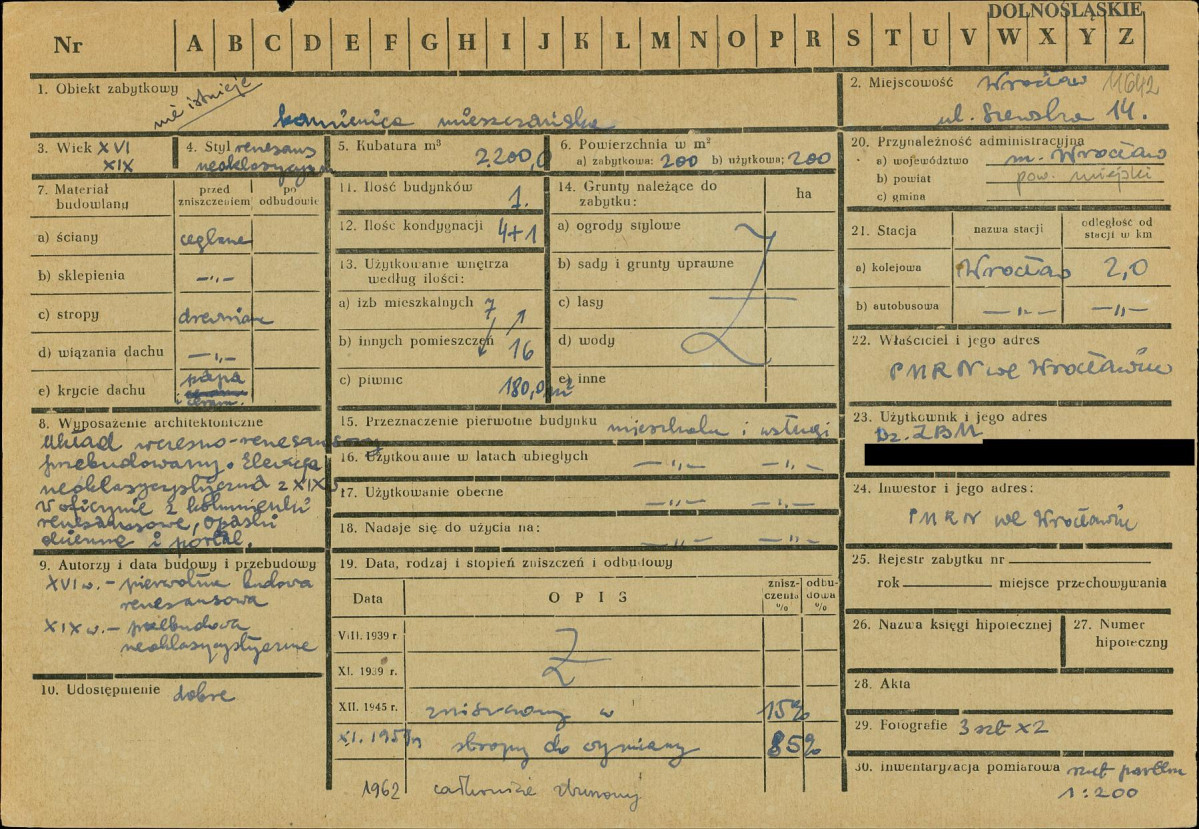 DOLNOŚLĄSKIE
Nr A B C D E F G H I J K L M N O P R S T U V W X Y Z
1. Obiekt zabytkowy
nie istnieje
kamienica mieszczańska
2. Miejscowość Wrocław 11642
ul. Szewska 14.
3. Wiek XVI
XIX
4. Styl renesans
neoklasycyzm
5. Kubatura m³
2.200,0
6. Powierzchnia w m²
a) zabytkowa: 200 b) użytkowa: 200
7. Materiał budowlany
przed zniszczeniem
po odbudowie
a) ściany ceglane
b) sklepienia —„—
c) stropy drewniane
d) wiązania dachu —„—
e) krycie dachu papa
8. Wyposażenie architektoniczne
Układ wczesno-renesansowy
przebudowany. Elewacja
neoklasycystyczna z XIX w.
W oficynie 2 kolumienki
renesansowe, opaski
okienne i portal.
9. Autorzy i data budowy i przebudowy
XVI w. – pierwotna budowa
renesansowa
XIX w. – przebudowa
neoklasycystyczna
10. Udostępnienie dobre
11. Ilość budynków
1.
12. Ilość kondygnacji 4+1
13. Użytkowanie wnętrza
według ilości:
a) izb mieszkalnych 7
b) innych pomieszczeń 16
c) piwnic 180,0 m²
14. Grunty należące do
zabytku:
ha
a) ogrody stylowe
b) sady i grunty uprawne
c) lasy
d) wody
e) inne
15. Przeznaczenie pierwotne budynku mieszkalne i usługi
16. Użytkowanie w latach ubiegłych —„— —„—
17. Użytkowanie obecne —„— —„—
18. Nadaje się do użycia na: —„— —„—
19. Data, rodzaj i stopień zniszczeń i odbudowy
Data
OPIS
zniszczenia %
odbudowa %
VIII. 1939 r.
XI. 1939 r.
XII. 1945 r. zniszczony w 15%
XI. 195 r. stropy do wymiany 85%
1962 całkowicie zburzony
20. Przynależność administracyjna
a) województwo m. Wrocław
b) powiat pow. miejski
c) gmina
21. Stacja
nazwa stacji
odległość od stacji w km
a) kolejowa Wrocław 2,0
b) autobusowa —„— —„—
22. Właściciel i jego adres
PMRN we Wrocławiu
23. Użytkownik i jego adres
Dz. ZBM
24. Inwestor i jego adres:
PMRN we Wrocławiu
25. Rejestr zabytku nr
rok miejsce przechowywania
26. Nazwa księgi hipotecznej
27. Numer
hipoteczny
28. Akta
29. Fotografie 3 szt x 2
30. Inwentaryzacja pomiarowa rzut parteru
1:200